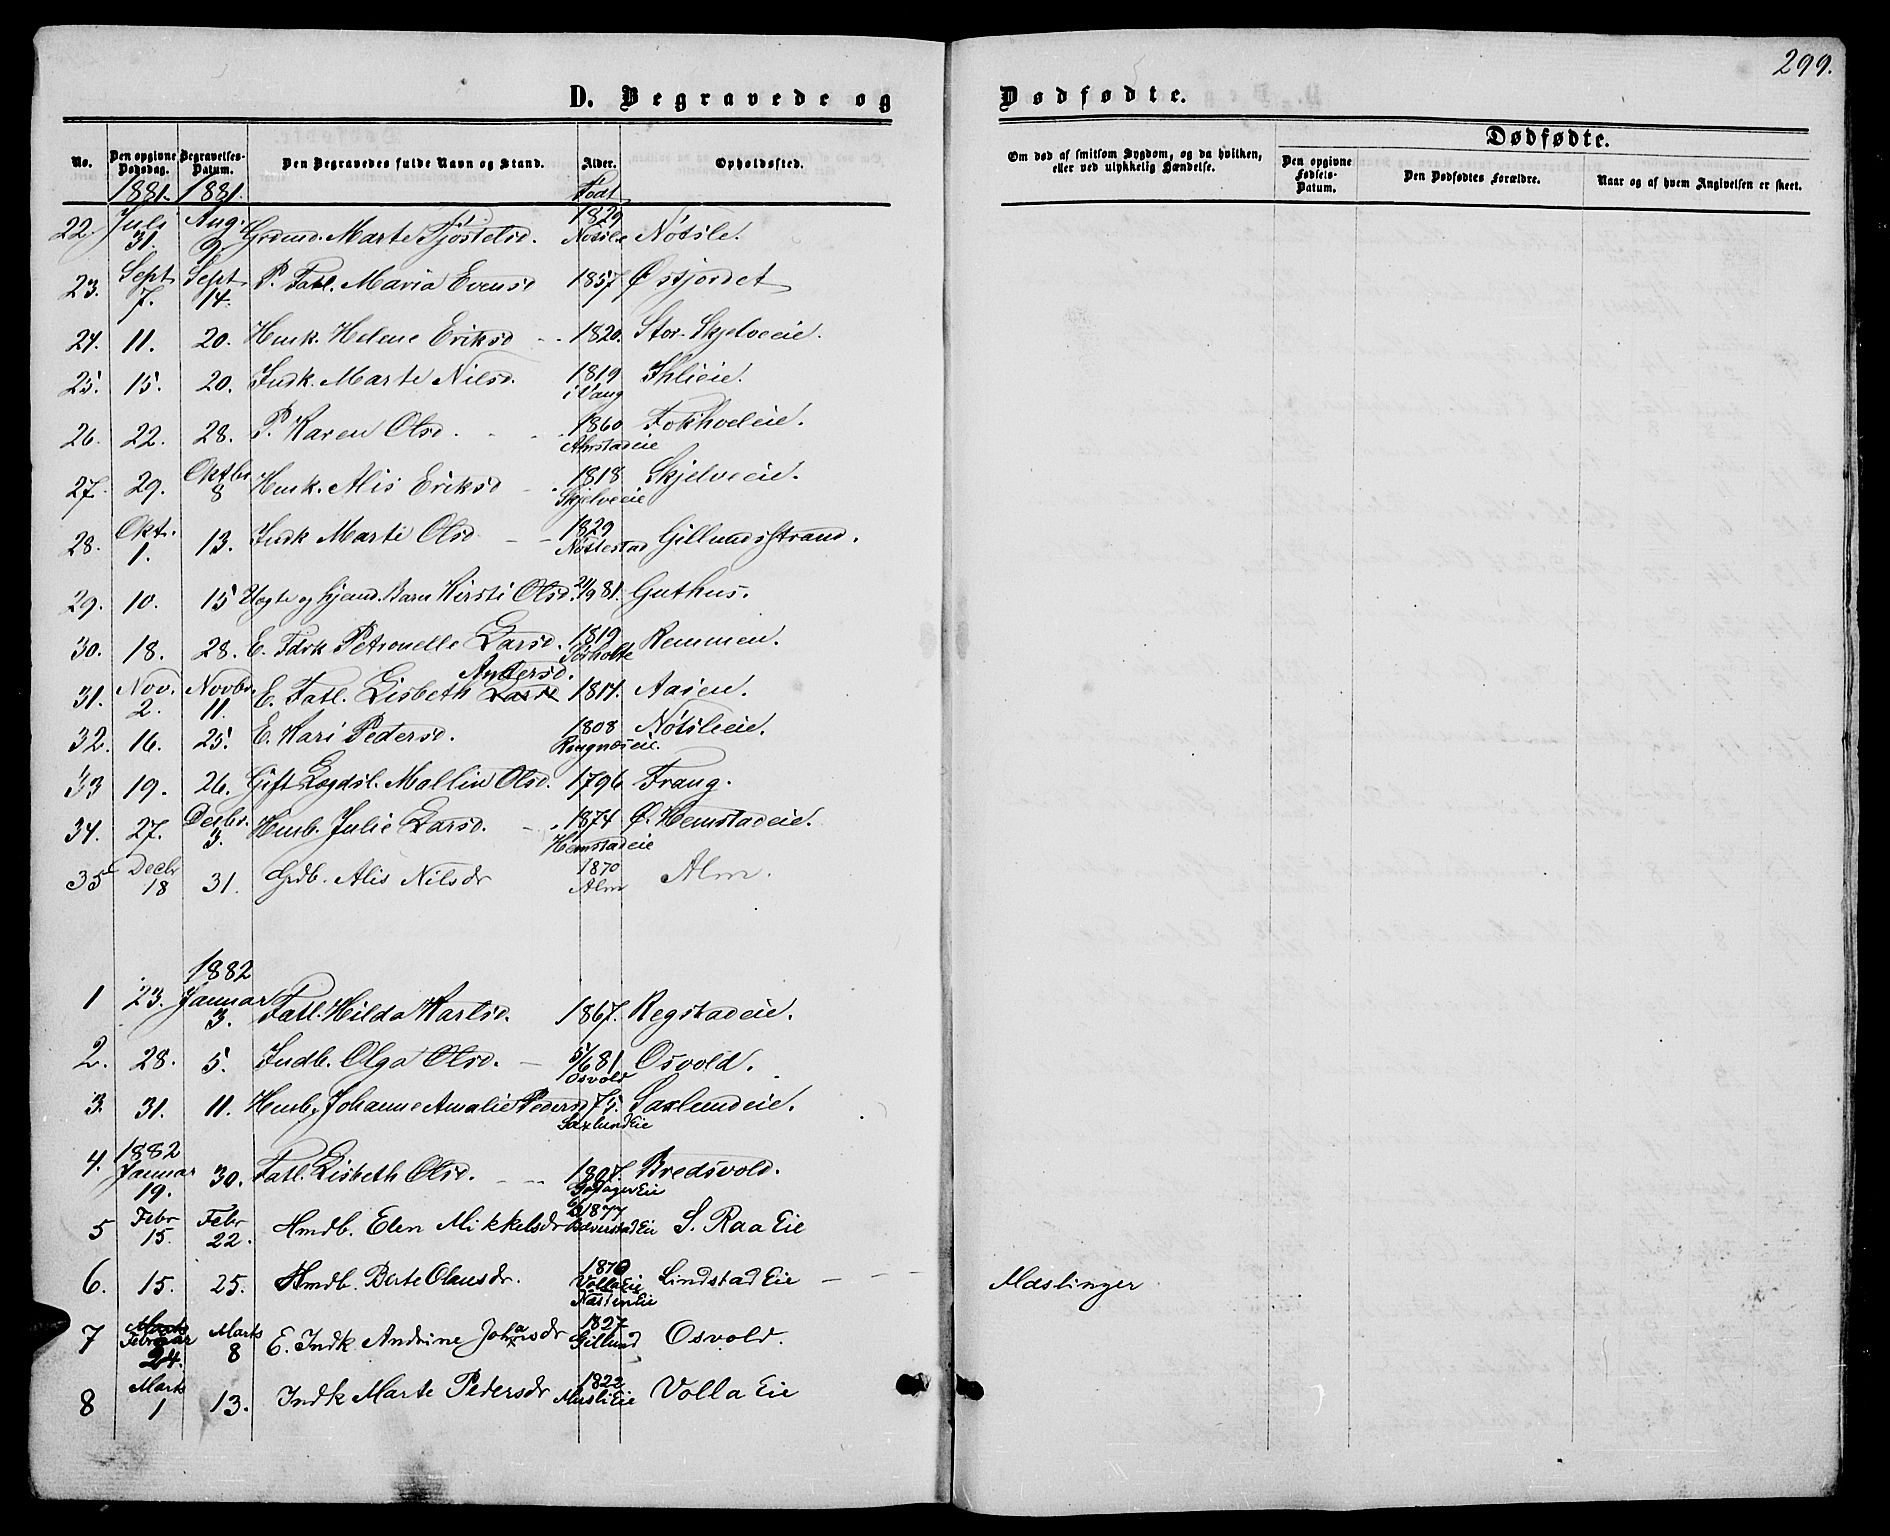 299.
D. Begravede og
Dødfødte.
No. Den opgivne Dødsdag. Begravelses-Datum. Den Begravedes fulde Navn og Stand. Alder. Opholdssted.
Om død af smitsom Sygdom, og da hvilken, eller ved ulykkelig Hændelse.
Dødfødte.
Den opgivne Fødsels-Datum. Den Dødfødtes Forældre. Naar og af hvem Angivelsen er skeet.
1881. 1881. Født
22. Juli 31. Aug. 9. Grdmd. Marte Tjøstelsd. 1829 Nötsle Nötsle.
23. Sept. 7. Sept. 14. P. Fatl. Maria Evensd 1857. Østjordet
24. 11. 20. Husk. Helene Eriksd 1820. Stor-Skjelveeie.
25. 15. 20. Indk. Marte Nilsd. 1819 i Vang Ihlieie.
26. 22. 28. P. Karen Olsd. 1860 Ahrstadeie Fokholeie.
27. 29. Oktbr 8 Husk. Alis Eriksd 1818 Skjelveeie Skjelveeie.
28. Okt. 1. 13. Indk Marte Olsd 1829 Nöttestad Gillundsstrand.
29. 10. 15 Uegte og hjemd. Barn Kirsti Olsd. 21/9 81. Guthus.
30. 18. 28. E. Fdrk Petronelle Larsd. 1819 Remmen.
31. Nov. 2. Novbr. 11. E. Fatl. Lisbeth Andersd. 1814. Aasen.
32. 16. 25. E. Kari Pedersd. 1808 Rognæseie. Nötsleeie.
33 19. 26. Gift Lægdsl. Mallin Olsd. 1796 Frang.
34. 27. Decbr. 3. Husb. Julie Larsd. 1874 Hemstadeie Ø. Hemstadeie.
35 Decbr 18 31. Grdb. Alis Nilsdr 1870 Alm Alm.
1882
1 23. Januar 3. Fatl. Hilda Karlsd. 1867. Regstadeie.
2. 28. 5. Indb. Olga Olsd. 5/6 81. Osvold Osvold.
3. 31. 11. Husb. Johanne Amalie Pedersd 75. SaxlundEie Saxlundeie.
4. 1882 Januar 19. 30. Fatl. Lisbeth Olsd. 1807. Bredsvold.
5 Febr 15. Febr 22. Hmdb. Elen Mikkelsdr 1877 S. Raa Eie
6. 15. 25. Hmdb. Berte Olausdr. 1870 Volla Eie Næsten Eie Lindstad Eie Mæslinger
7 Februar 24. Marts 8 E. Indk Andrine Johansdr 1827 Gillund Osvold.
8 Marts 1 13. Indk Marte Pedersdr 1822 Musli Eie Volla Eie